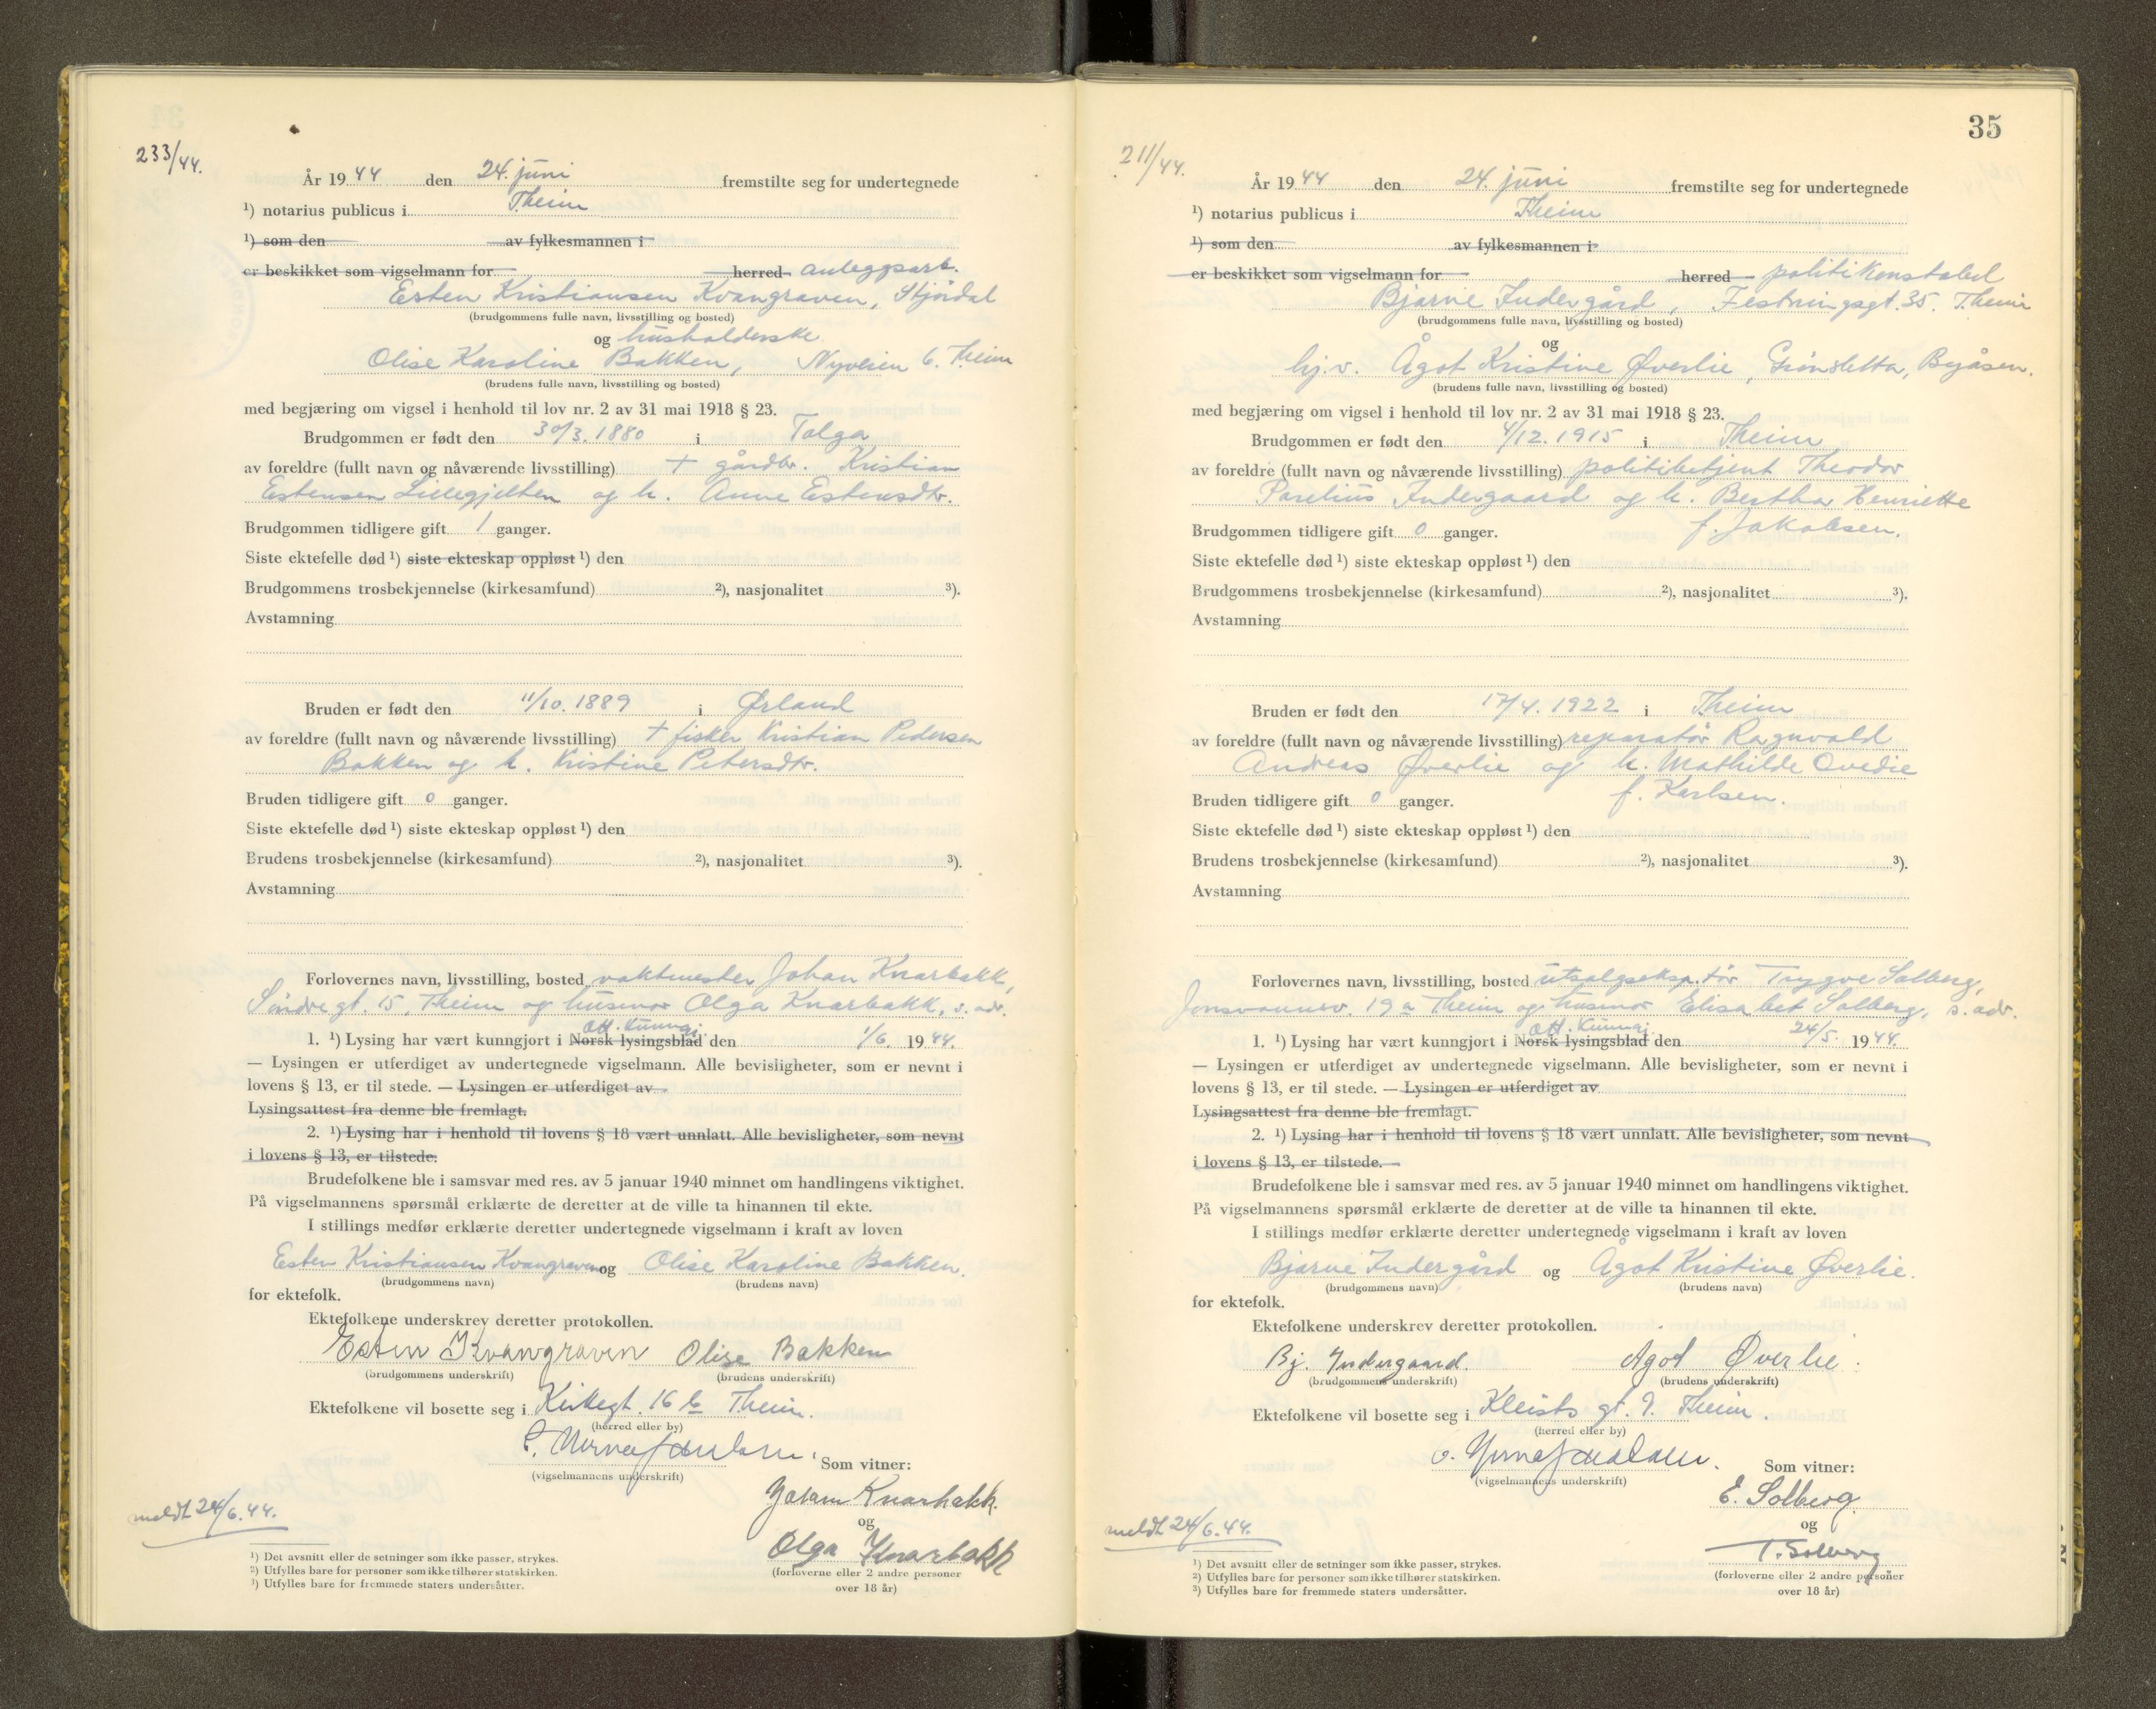 233/44.
År 19 44 den 24. juni fremstilte seg for undertegnede
¹) notarius publicus i Theim
¹) som den av fylkesmannen i
er beskikket som vigselmann for herred anleggsarb.
Esten Kristiansen Kvangraven, Stjördal
(brudgommens fulle navn, livsstilling og bosted)
og husholderske
Olise Karoline Bakken, Nyveien 6. Theim
(brudens fulle navn, livsstilling og bosted)
med begjæring om vigsel i henhold til lov nr. 2 av 31 mai 1918 § 23.
Brudgommen er født den 30/3. 1880 i Tolga
av foreldre (fullt navn og nåværende livsstilling) + gårdbr. Kristian
Estensen Lillegjelten og h. Anne Estensdtr.
Brudgommen tidligere gift 1 ganger.
Siste ektefelle død ¹) siste ekteskap oppløst ¹) den
Brudgommens trosbekjennelse (kirkesamfund) ²), nasjonalitet ³).
Avstamning
Bruden er født den 11/10. 1889 i Ørland
av foreldre (fullt navn og nåværende livsstilling) + fisker Kristian Pedersen
Bakken og h. Kristine Petersdtr.
Bruden tidligere gift 0 ganger.
Siste ektefelle død ¹) siste ekteskap oppløst ¹) den
Brudens trosbekjennelse (kirkesamfund) ²), nasjonalitet ³).
Avstamning
Forlovernes navn, livsstilling, bosted vaktmester Johan Knarbakk,
Söndregt. 15, Theim og husmor Olga Knarbakk, s. adr.
Off. kunngj.
1. ¹) Lysing har vært kunngjort i Norsk lysingsblad den 1/6. 19 44.
— Lysingen er utferdiget av undertegnede vigselmann. Alle bevisligheter, som er nevnt i
lovens § 13, er til stede. — Lysingen er utferdiget av
Lysingsattest fra denne ble fremlagt.
2. ¹) Lysing har i henhold til lovens § 18 vært unnlatt. Alle bevisligheter, som nevnt
i lovens § 13, er tilstede.
Brudefolkene ble i samsvar med res. av 5 januar 1940 minnet om handlingens viktighet.
På vigselmannens spørsmål erklærte de deretter at de ville ta hinannen til ekte.
I stillings medfør erklærte deretter undertegnede vigselmann i kraft av loven
Esten Kristiansen Kvangraven og Olise Karoline Bakken.
(brudgommens navn) (brudens navn)
for ektefolk.
Ektefolkene underskrev deretter protokollen.
Esten Kvangraven Olise Bakken
(brudgommens underskrift) (brudens underskrift)
Ektefolkene vil bosette seg i Kirkegt. 16 b Theim.
(herred eller by)
Som vitner:
(vigselmannens underskrift)
Johan Knarbakk.
og
Olga Knarbakk
(forloverne eller 2 andre personer
over 18 år)
meldt 24/6. 44.
¹) Det avsnitt eller de setninger som ikke passer, strykes.
²) Utfylles bare for personer som ikke tilhører statskirken.
³) Utfylles bare for fremmede staters undersåtter.
35
211/44.
År 19 44 den 24. juni fremstilte seg for undertegnede
¹) notarius publicus i Theim
¹) som den av fylkesmannen i
er beskikket som vigselmann for herred politikonstabel
Bjarne Indergård, Festningsgt. 35. Theim
(brudgommens fulle navn, livsstilling og bosted)
og
hj.v. Ågot Kristine Øverlie, Grönsletta, Byåsen.
(brudens fulle navn, livsstilling og bosted)
med begjæring om vigsel i henhold til lov nr. 2 av 31 mai 1918 § 23.
Brudgommen er født den 4/12. 1915 i Theim
av foreldre (fullt navn og nåværende livsstilling) politibetjent Theodor
Parelius Indergaard og h. Bertha Henriette
f. Jakobsen.
Brudgommen tidligere gift 0 ganger.
Siste ektefelle død ¹) siste ekteskap oppløst ¹) den
Brudgommens trosbekjennelse (kirkesamfund) ²), nasjonalitet ³).
Avstamning
Bruden er født den 17/4. 1922 i Theim
av foreldre (fullt navn og nåværende livsstilling) reparatör Ragnvald
Andreas Øverlie og h. Mathilde Ovedie
f. Karlsen.
Bruden tidligere gift 0 ganger.
Siste ektefelle død ¹) siste ekteskap oppløst ¹) den
Brudens trosbekjennelse (kirkesamfund) ²), nasjonalitet ³).
Avstamning
Forlovernes navn, livsstilling, bosted utsalgseksp.tör Trygve Solberg,
Jonsvannsv. 19 a Theim og husmor Elisabet Solberg, s. adr.
Off. kunngj.
1. ¹) Lysing har vært kunngjort i Norsk lysingsblad den 24/5. 19 44.
— Lysingen er utferdiget av undertegnede vigselmann. Alle bevisligheter, som er nevnt i
lovens § 13, er til stede. — Lysingen er utferdiget av
Lysingsattest fra denne ble fremlagt.
2. ¹) Lysing har i henhold til lovens § 18 vært unnlatt. Alle bevisligheter, som nevnt
i lovens § 13, er tilstede.
Brudefolkene ble i samsvar med res. av 5 januar 1940 minnet om handlingens viktighet.
På vigselmannens spørsmål erklærte de deretter at de ville ta hinannen til ekte.
I stillings medfør erklærte deretter undertegnede vigselmann i kraft av loven
Bjarne Indergård og Ågot Kristine Øverlie.
(brudgommens navn) (brudens navn)
for ektefolk.
Ektefolkene underskrev deretter protokollen.
Bj. Indergaard Agot Øverlie
(brudgommens underskrift) (brudens underskrift)
Ektefolkene vil bosette seg i Kleists gt. 9. Theim.
(herred eller by)
Som vitner:
(vigselmannens underskrift)
E. Solberg
og
T. Solberg
(forloverne eller 2 andre personer
over 18 år)
meldt 24/6. 44.
¹) Det avsnitt eller de setninger som ikke passer, strykes.
²) Utfylles bare for personer som ikke tilhører statskirken.
³) Utfylles bare for fremmede staters undersåtter.